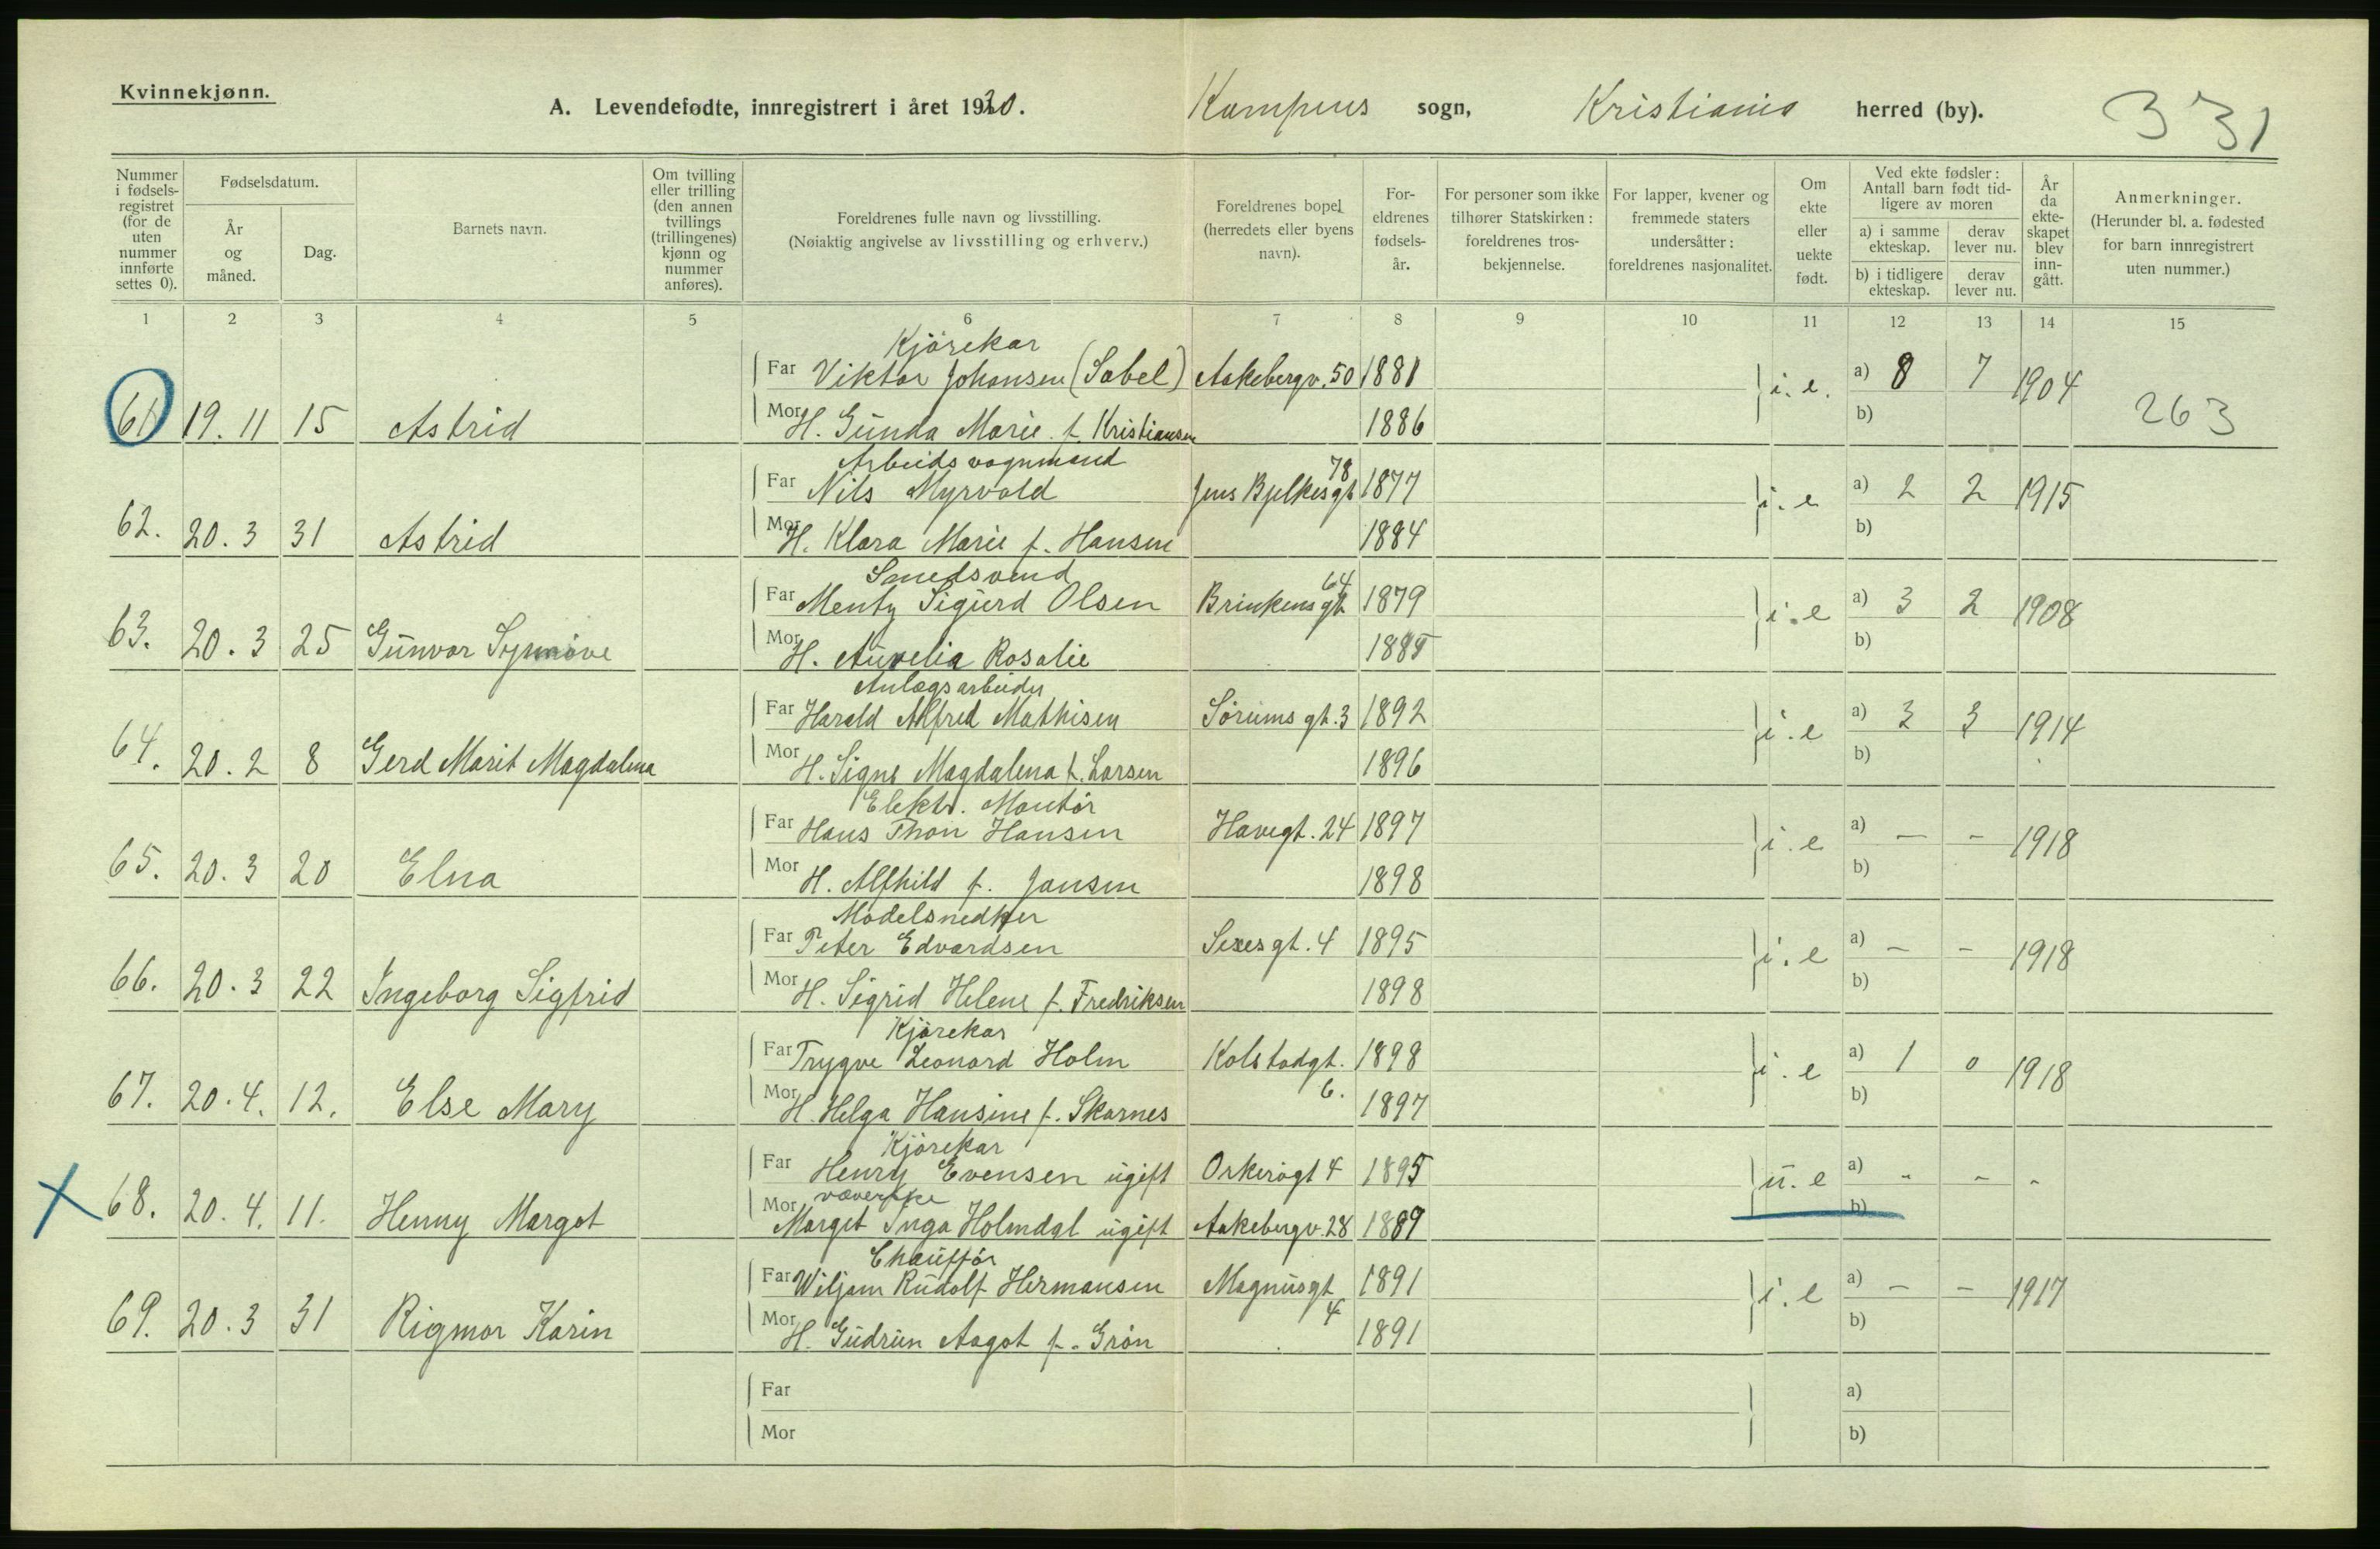 Kvinnekjønn.
A. Levendefødte, innregistrert i året 1920. Kampens sogn, Kristiania herred (by). 331
Nummer i fødsels- registret (for de uten nummer innførte settes 0).
Fødselsdatum.
År og måned.
Dag.
Barnets navn.
Om tvilling eller trilling (den annen tvillings (trillingenes) kjønn og nummer anføres).
Foreldrenes fulle navn og livsstilling.
(Nøiaktig angivelse av livsstilling og erhverv.)
Foreldrenes bopel (herredets eller byens navn).
For- eldrenes fødsels- år.
For personer som ikke tilhører Statskirken: foreldrenes tros- bekjennelse.
For lapper, kvener og fremmede staters undersåtter: foreldrenes nasjonalitet.
Om ekte eller uekte født.
Ved ekte fødsler: Antall barn født tid- ligere av moren
a) i samme ekteskap.
derav lever nu.
b) i tidligere ekteskap.
derav lever nu.
År da ekte- skapet blev inn- gått.
Anmerkninger.
(Herunder bl. a. fødested for barn innregistrert uten nummer.)
1 2 3 4 5 6 7 8 9 10 11 12 13 14 15
Kjörekar
Far Viktor Johansen (Sabel) Aakebergv. 50 1881 i. e. a) 8 7 1904
61 19. 11 15 Astrid Mor H. Gunda Marie f. Kristiansen 1886 b) 263
Arbeidsvognmand
Far Nils Myrvold Jens Bjelkesgt 78 1877 i. e a) 2 2 1915
62. 20. 3 31 Astrid Mor H. Klara Marie f. Hansen 1884 b)
Smedsvend
Far Mentz Sigurd Olsen Brinkens gt. 64 1879 i. e a) 3 2 1908
63. 20. 3 25 Gunvor Synnöve Mor H. Aurelia Rosalie 1885 b)
Anlægsarbeider
Far Harald Alfred Mathisen Sörums gt. 3 1892 i. e a) 3 3 1914
64. 20. 2 8 Gerd Marit Magdalena Mor H. Signe Magdalena f. Larsen 1896 b)
Elektr. Montör
Far Hans Thon Hansen Havegt. 24 1897 i. e a) — — 1918
65. 20. 3 20 Elna Mor H. Alfhild f. Jansen 1898 b)
Modelsnedker
Far Peter Edvardsen Sexes gt. 4 1895 i. e a) — — 1918
66. 20. 3 22 Ingeborg Sigfrid Mor H. Sigrid Helene f. Fredriksen 1898 b)
Kjörekar
Far Trygve Leonard Holm Kolstadgt. 6. 1898 i. e a) 1 0 1918
67. 20. 4. 12. Else Mary Mor H. Helga Hansine f. Skarnes 1897 b)
Kjörekar
Far Henry Evensen ugift Orkerögt 4 1895 u. e a) - - -
væverske
X 68. 20. 4. 11. Henny Margot Mor Margit Inga Holmdal ugift Aakebergv. 28 1889 b)
Chaufför
Far Wiljam Rudolf Hermansen Magnusgt 4 1891 i. e a) — — 1917
69. 20. 3 31 Rigmor Karin Mor H. Gudrun Aagot f. Grön 1891 b)
Far a)
Mor b)